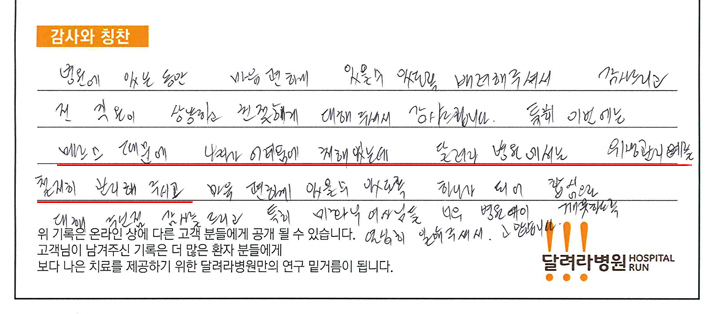 감사와 칭찬
병원에 있는 동안 마음 편하게 있을수 있도록 배려해주셔서 감사드리고
전 직원이 상냥하고 친절하게 대해주셔서 감사드립니다. 특히 이번에는
메르스 때문에 나라가 어려움에 처해있는데 달려라 병원에서는 위생관리 예방
철저히 관리해 주시고 마음 편하게 있을수 있도록 하나가 되어 합심으로
대해 주신점 감사를 드리고 특히 여사님들 너무 병원 깨끗하도록
열심히 일해주셔서. 고맙습니다.
위 기록은 온라인 상에 다른 고객 분들에게 공개 될 수 있습니다.
고객님이 남겨주신 기록은 더 많은 환자 분들에게
보다 나은 치료를 제공하기 위한 달려라병원만의 연구 밑거름이 됩니다.
달려라병원 HOSPITAL RUN